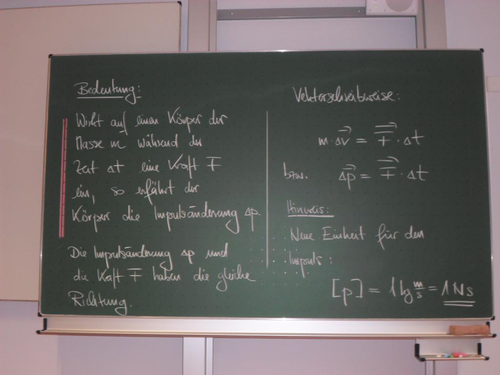 Bedeutung:
Wirkt auf einen Körper der
Masse m während der
Zeit Δt eine Kraft F̅
ein, so erfährt der
Körper die Impulsänderung Δp.
Die Impulsänderung Δp und
die Kraft F̅ haben die gleiche
Richtung.
Vektorschreibweise:
m·Δv⃗ = F̅⃗ · Δt
bzw. Δp⃗ = F̅⃗ · Δt
Hinweis:
Neue Einheit für den
Impuls:
[p] = 1 kg m/s = 1 Ns